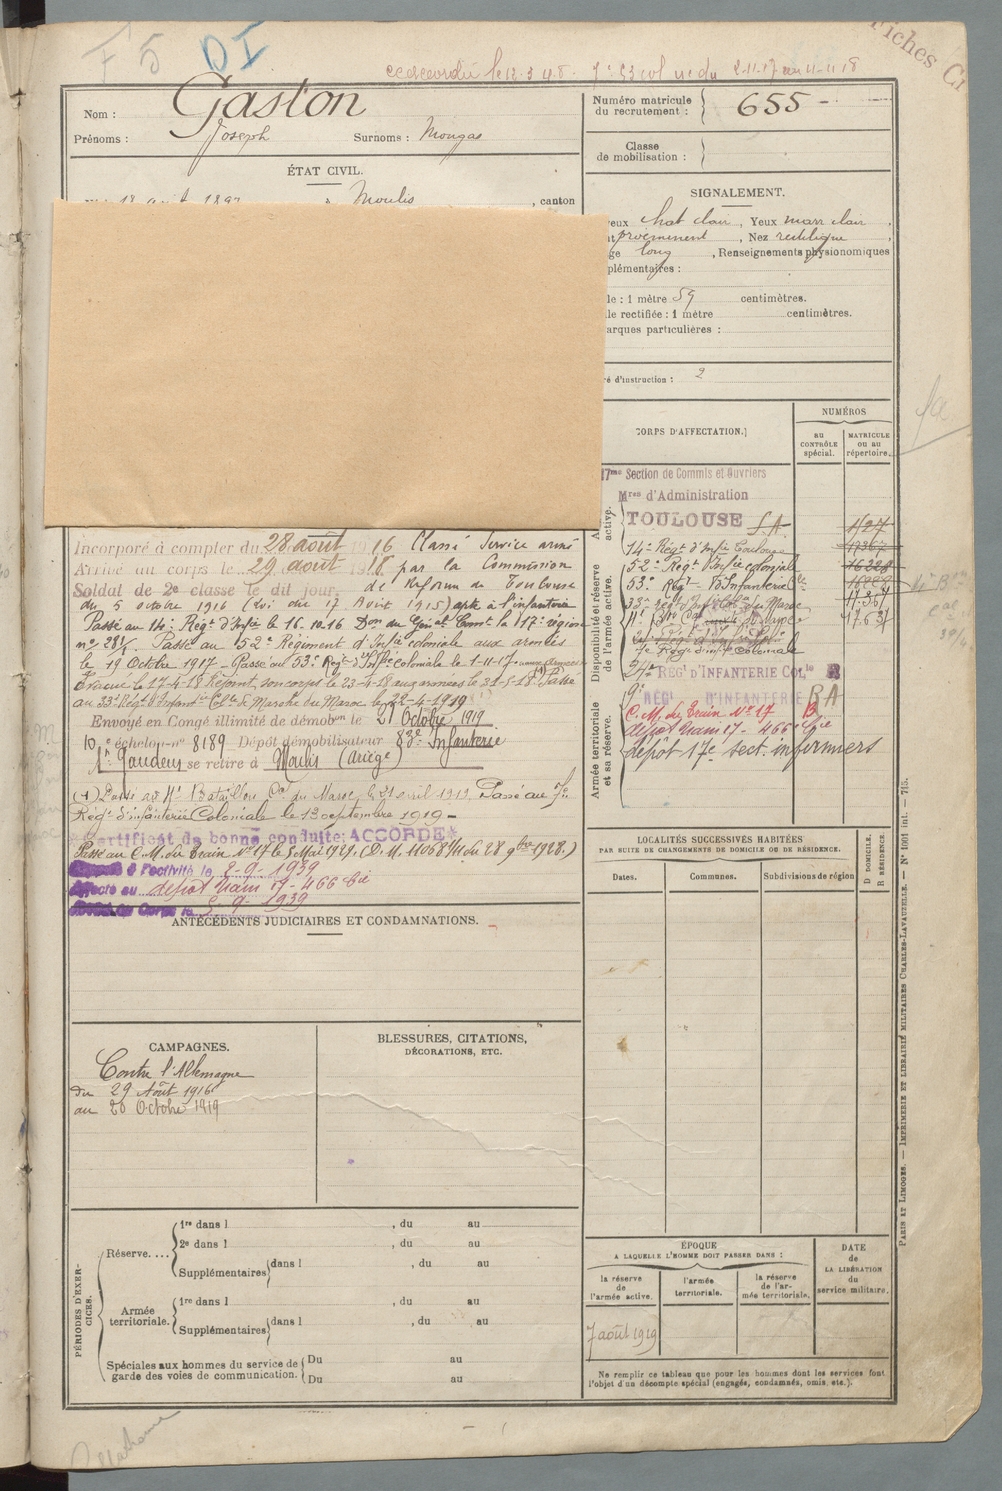 F 5 DI
Fiches
Nom : Gaston
Prénoms : Joseph Surnoms : Mongas
Numéro matricule
du recrutement : 655
Classe
de mobilisation :
ÉTAT CIVIL.
Moulis , canton
SIGNALEMENT.
chat clair , Yeux marr clair ,
proéminent , Nez rectiligne
long , Renseignements physionomiques
plémentaires :
le : 1 mètre 59 centimètres.
le rectifiée : 1 mètre centimètres.
arques particulières :
é d'instruction : 2
CORPS D'AFFECTATION.
NUMÉROS
AU
CONTRÔLE
spécial.
MATRICULE
ou au
répertoire.
Section de Commis et Ouvriers
d'Administration
TOULOUSE S.A.
14e Régt d'Infie Toulouse
52e Régt d'Infie coloniale
53e Regt
7e Régt d'inf coloniale
REGt D'INFANTERIE COLle R
REGt D'INFANTERIE
C.M. du Train No 17
dépôt train 17 - 466 Cie
dépôt 17e sect. infirmiers
Disponibilité et réserve
de l'armée active.
Armée territoriale
et sa réserve.
Incorporé à compter du 28 août 1916 Classé Service armé
Arrivé au corps le 29 août 1916 par la Commission
Soldat de 2e classe le dit jour. de Réforme de Toulouse
du 5 octobre 1916 (Loi du 17 Août 1915) apte à l'infanterie
Passé au 14e Régt d'Infie le 16.10.16 Don du Génal Comt la 17e région
Passé au 52e Régiment d'Infie coloniale aux armées
le 19 Octbre 1917 - Passé au 53e Régt d'Infie coloniale le 1-11-17
Evacué le 17-4-18 Rejoint son corps le 23-4-18 aux armées le 31-5-18 Passé
au 33e Régt d'Infant-ie Cole de Marche du Maroc le 22-4-1919
Envoyé en Congé illimité de démobon le 21 Octobre 1919
10e échelon no 8189 Dépôt démobilisateur 83e Infanterie
St Gaudens se retire à Moulis (Ariège)
Passé au Bataillon Cal du Maroc le 21 avril 1919. Passé au 7e
Régt d'infanterie Coloniale le 13 septembre 1919 -
Certificat de bonne conduite: ACCORDÉ
Passé au C.M. du Train No 17 le 5 Mai 1929. (D.M. 11068 1/11 du 28 9bre 1928.)
à l'activité le 2-9-1939
Affecté au dépôt train 17 - 466 Cie
5-9-1939
ANTÉCÉDENTS JUDICIAIRES ET CONDAMNATIONS.
LOCALITÉS SUCCESSIVES HABITÉES
PAR SUITE DE CHANGEMENTS DE DOMICILE OU DE RÉSIDENCE.
Dates. Communes. Subdivisions de région
D DOMICILE.
R RÉSIDENCE.
CAMPAGNES.
Contre l'Allemagne
du 29 Août 1916
au 20 Octobre 1919
BLESSURES, CITATIONS,
DÉCORATIONS, ETC.
PÉRIODES D'EXER-
CICES.
Réserve....
1re dans l , du au
2e dans l , du au
Supplémentaires dans l , du au
Armée
territoriale.
1re dans l , du au
Supplémentaires dans l , du au
Spéciales aux hommes du service de
garde des voies de communication.
Du au
Du au
ÉPOQUE
A LAQUELLE L'HOMME DOIT PASSER DANS :
la réserve
de
l'armée active.
l'armée
territoriale.
la réserve
de l'ar-
mée territoriale.
DATE
de
LA LIBÉRATION
du
service militaire.
7 août 1919
Ne remplir ce tableau que pour les hommes dont les services font
l'objet d'un décompte spécial (engagés, condamnés, omis, etc.).
PARIS ET LIMOGES. — IMPRIMERIE ET LIBRAIRIE MILITAIRES CHARLES-LAVAUZELLE. — No 1001 int. — 715.